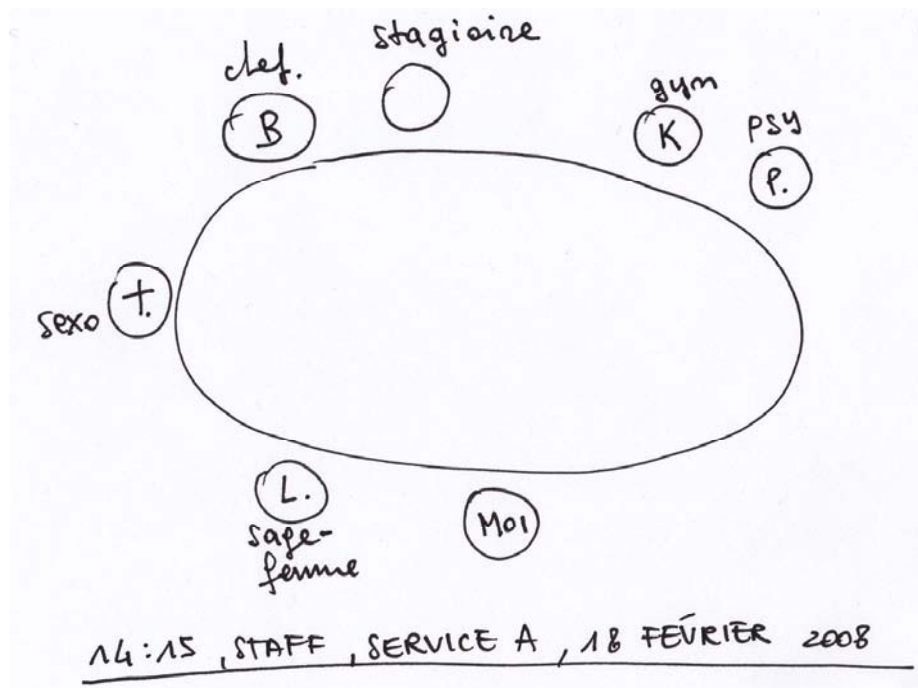 stagiaire
chef.
B
gym
K
psy
P.
sexo
T.
L.
sage-
femme
MOI
14:15, STAFF, SERVICE A, 18 FÉVRIER 2008